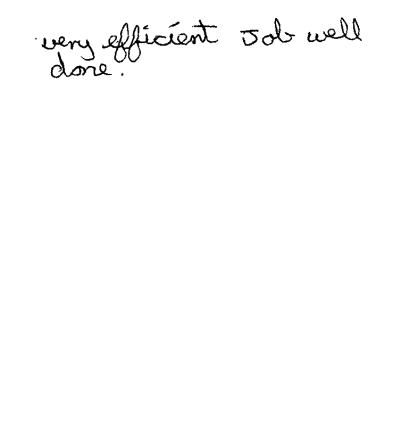 very efficient Job well
done.